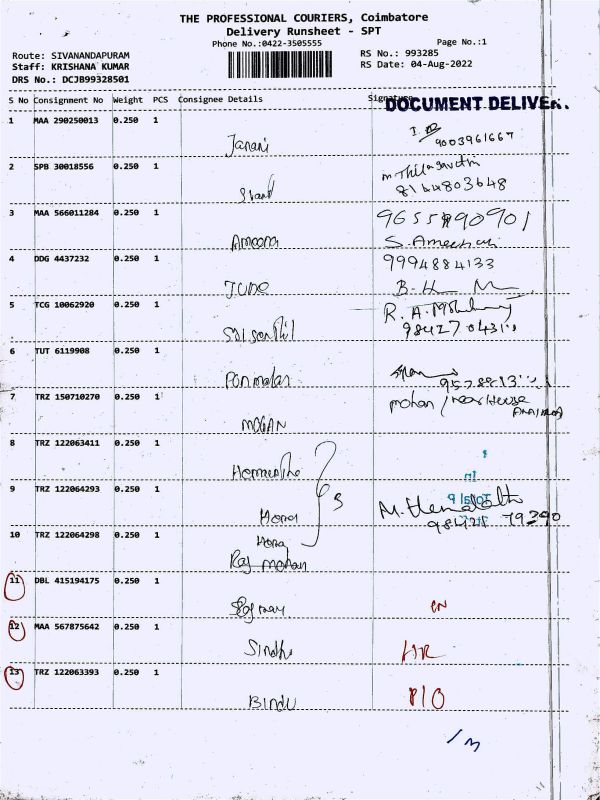 THE PROFESSIONAL COURIERS, Coimbatore
Delivery Runsheet - SPT
Phone No.:0422-3505555
Page No.:1
Route: SIVANANDAPURAM
Staff: KRISHANA KUMAR
DRS No.: DCJB99328501
RS No.: 993285
RS Date: 04-Aug-2022
S No Consignment No Weight PCS Consignee Details Signature
DOCUMENT DELIVER
1 MAA 290250013 0.250 1
Janani 9003961667
2 SPB 30018556 0.250 1
8164803648
3 MAA 566011284 0.250 1
Ameena S. Ameen
4 DDG 4437232 0.250 1 9994884133
JUNE
5 TCG 10062920 0.250 1
6 TUT 6119908 0.250 1
Ponmalar
7 TRZ 150710270 0.250 1 mohan / near House
MOGAN
8 TRZ 122063411 0.250 1
9 TRZ 122064293 0.250 1
Hema 3
10 TRZ 122064298 0.250 1
Hema
Raj mohan
11 DBL 415194175 0.250 1
12 MAA 567875642 0.250 1
Sindhu
13 TRZ 122063393 0.250 1
BINDU